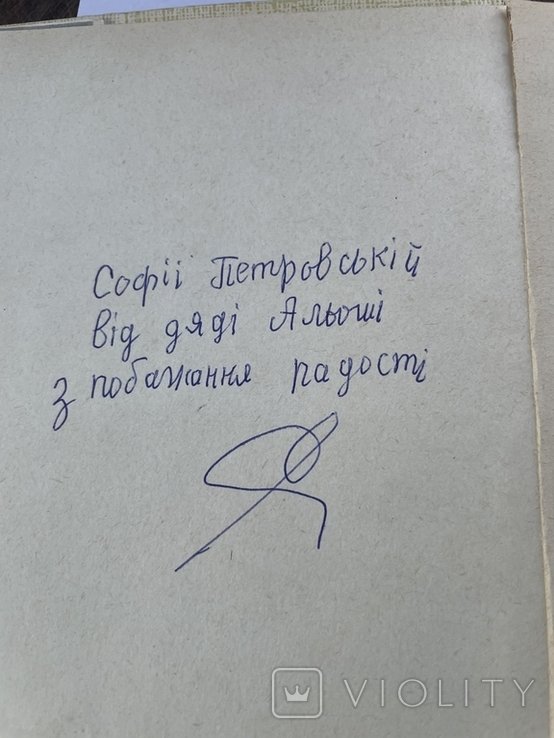 Софії Петровській
від дяді Альоші
з побажання радості
VIOLITY